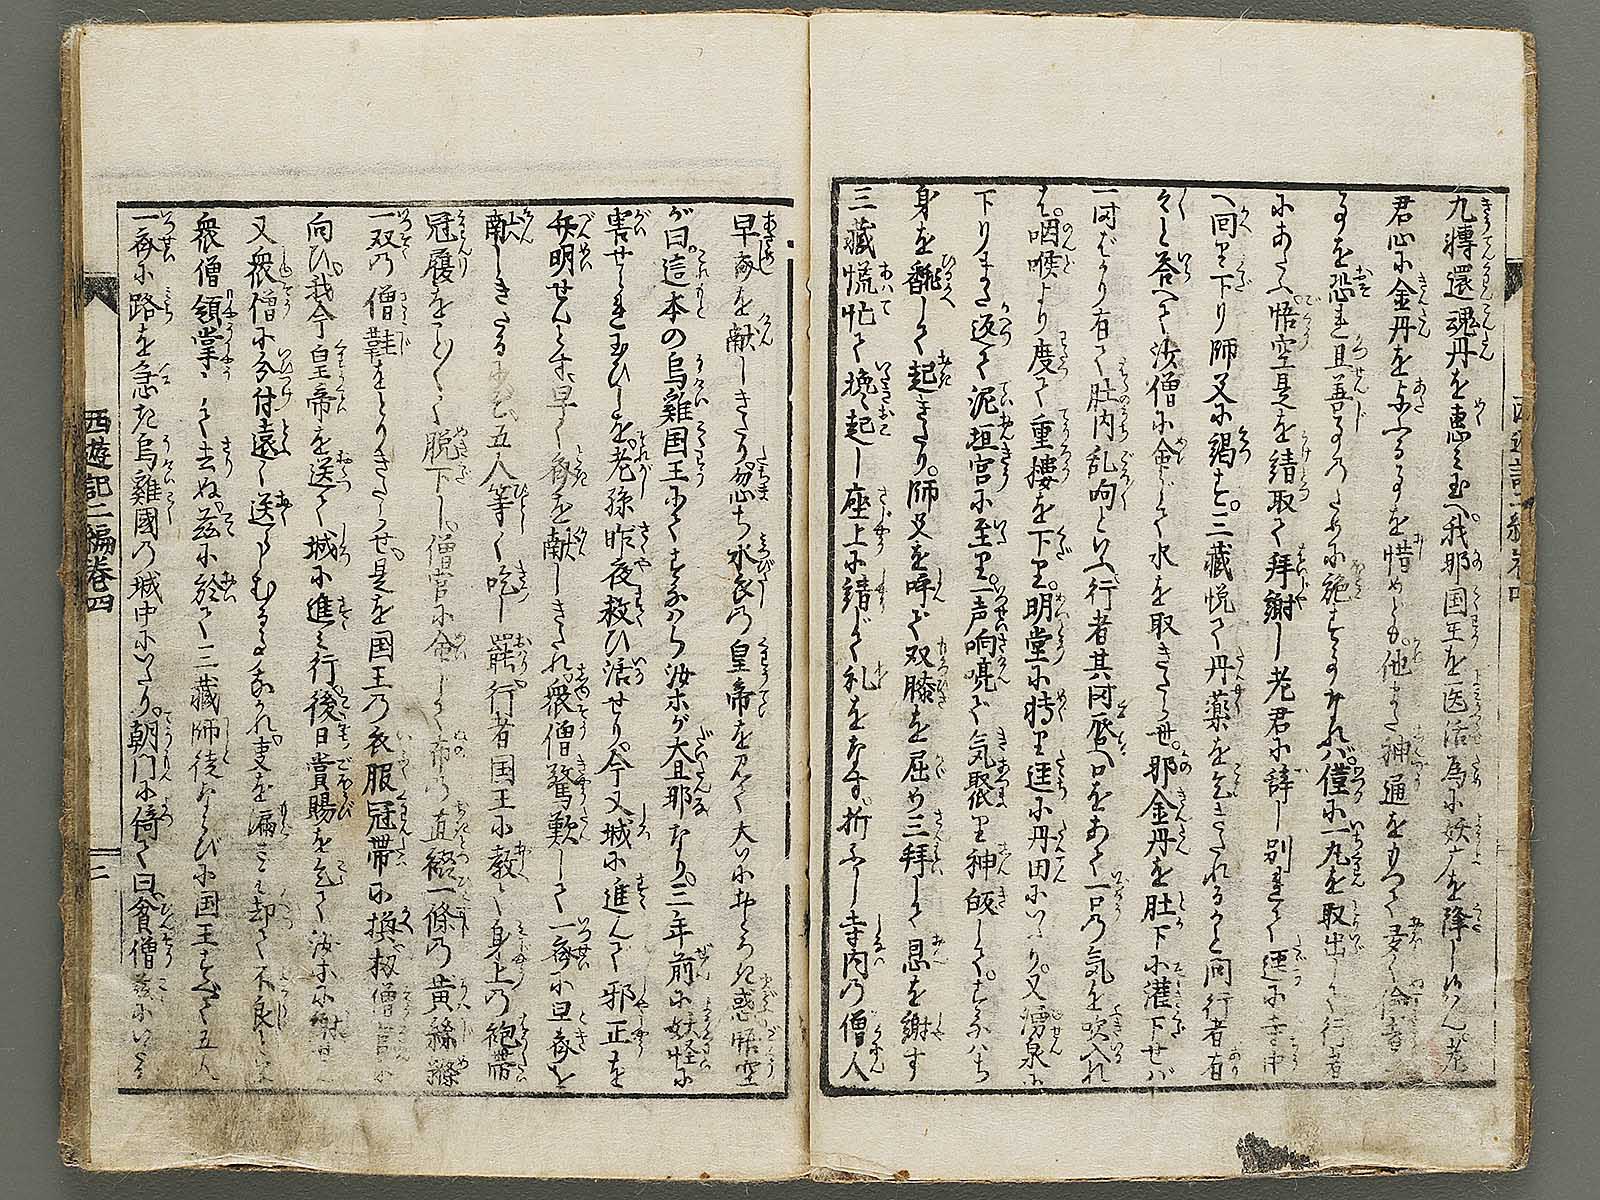 九轉還魂丹を惠え玉へ我那国王を医活為に妖广を降し候はん老
君心に金丹を与ふる事を惜めども他また神通をもつて
事を恐れ且善事のために施す事なれば僅に一丸を取出して行者
にあたふ悟空是を請取て拜謝し老君に辞し別れて逕に寺中
へ回り下り師父に謁す三藏悦て丹藥を乞きたれるかと问行者有
〱と答へて汝僧に命じて水を取きたらせ那金丹を肚下に灌下せば
一时ばかり有て肚内乱响といふ行者其时唇へ口をあて一口の気を吹入れ
ば咽喉より度て重樓を下り明堂に轉り逕に丹田にいたり又湧泉に
下りまた返て泥垣宮に至り一声响喨て気聚り神皈して
身を翻して起きたり師父を呼で双膝を屈め三拜して恩を謝す
三藏慌忙て挽起し座上に請じて礼をなす折ふし寺内の僧人
早斎を献しきたり忽ち水衣の皇帝を見て大いにおどろき惑ふ悟空
が曰這本の烏雞国王にてすなはち汝ホが大旦那なり三年前に妖怪に
害せられ玉ひしを老孫昨夜救ひ活せり今又城に進んで邪正を
弁明せんとす早く斎を献しきたれ衆僧驚歎して一斉に早斎を
献しきたる五人等く吃し罷行者国王に教て身上の袍帶
冠履をこと〲く脱下し僧官に命して布の直綴一條の黄絲縧
一双の僧鞋をとりきたらせ是を国王の衣服冠帶に換扨僧官に
向ひ我今皇帝を送て城に進み行後日賞賜を乞て汝ホに謝せん
又衆僧に分付遠く送らしむる事なかれ
衆僧領掌して去ぬ茲に於て三藏師徒ならびに国王すべて五人
一斉に路を急ぎ烏雞國の城中にいたり朝门に倚て曰貧僧茲にいたる
西遊記二編卷四
二